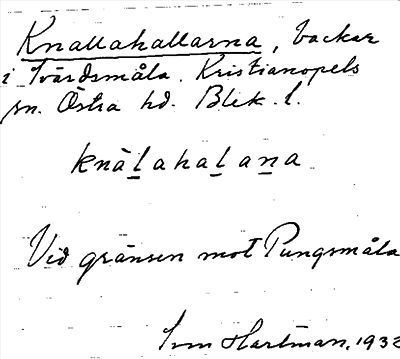 Knallahallarna, backar
i Tvärdsmåla. Kristianopels
sn. Östra hd. Blek. l.
knàḻahaḻaṉa
Vid gränsen mot Pungsmåla
Hartman, 1932